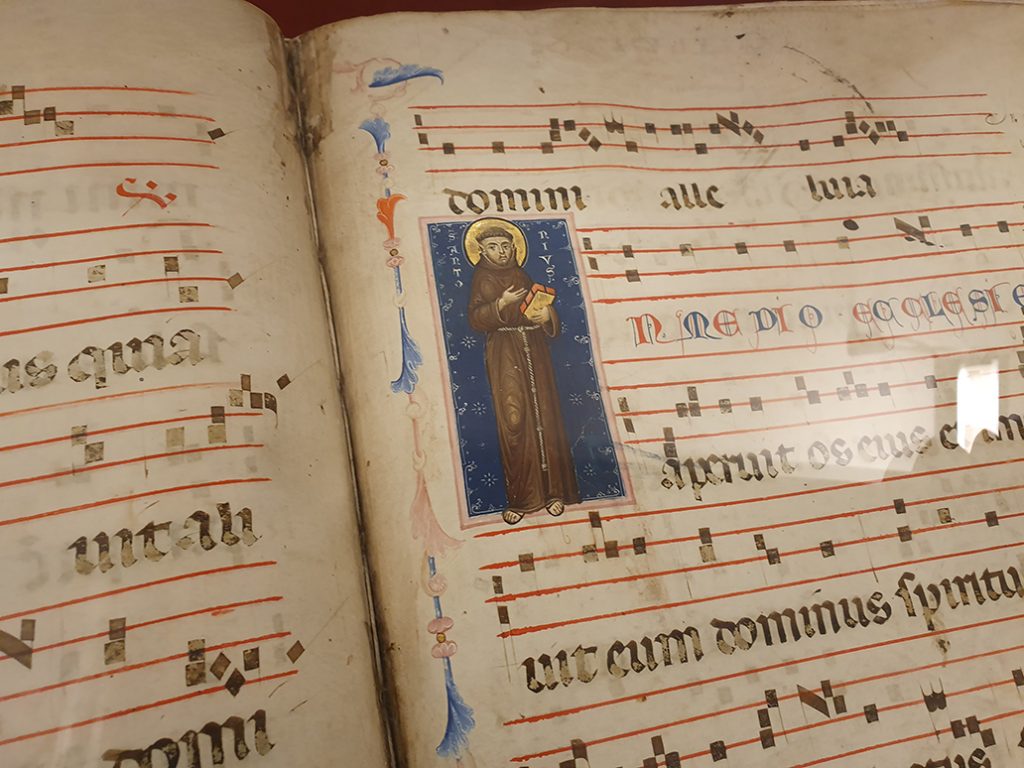 us quia
uit ali
domi
domini alle luia
SANTO NIVS
IN MEDIO ECCLESIE
aperuit os eius et im
uit eum dominus spiritu